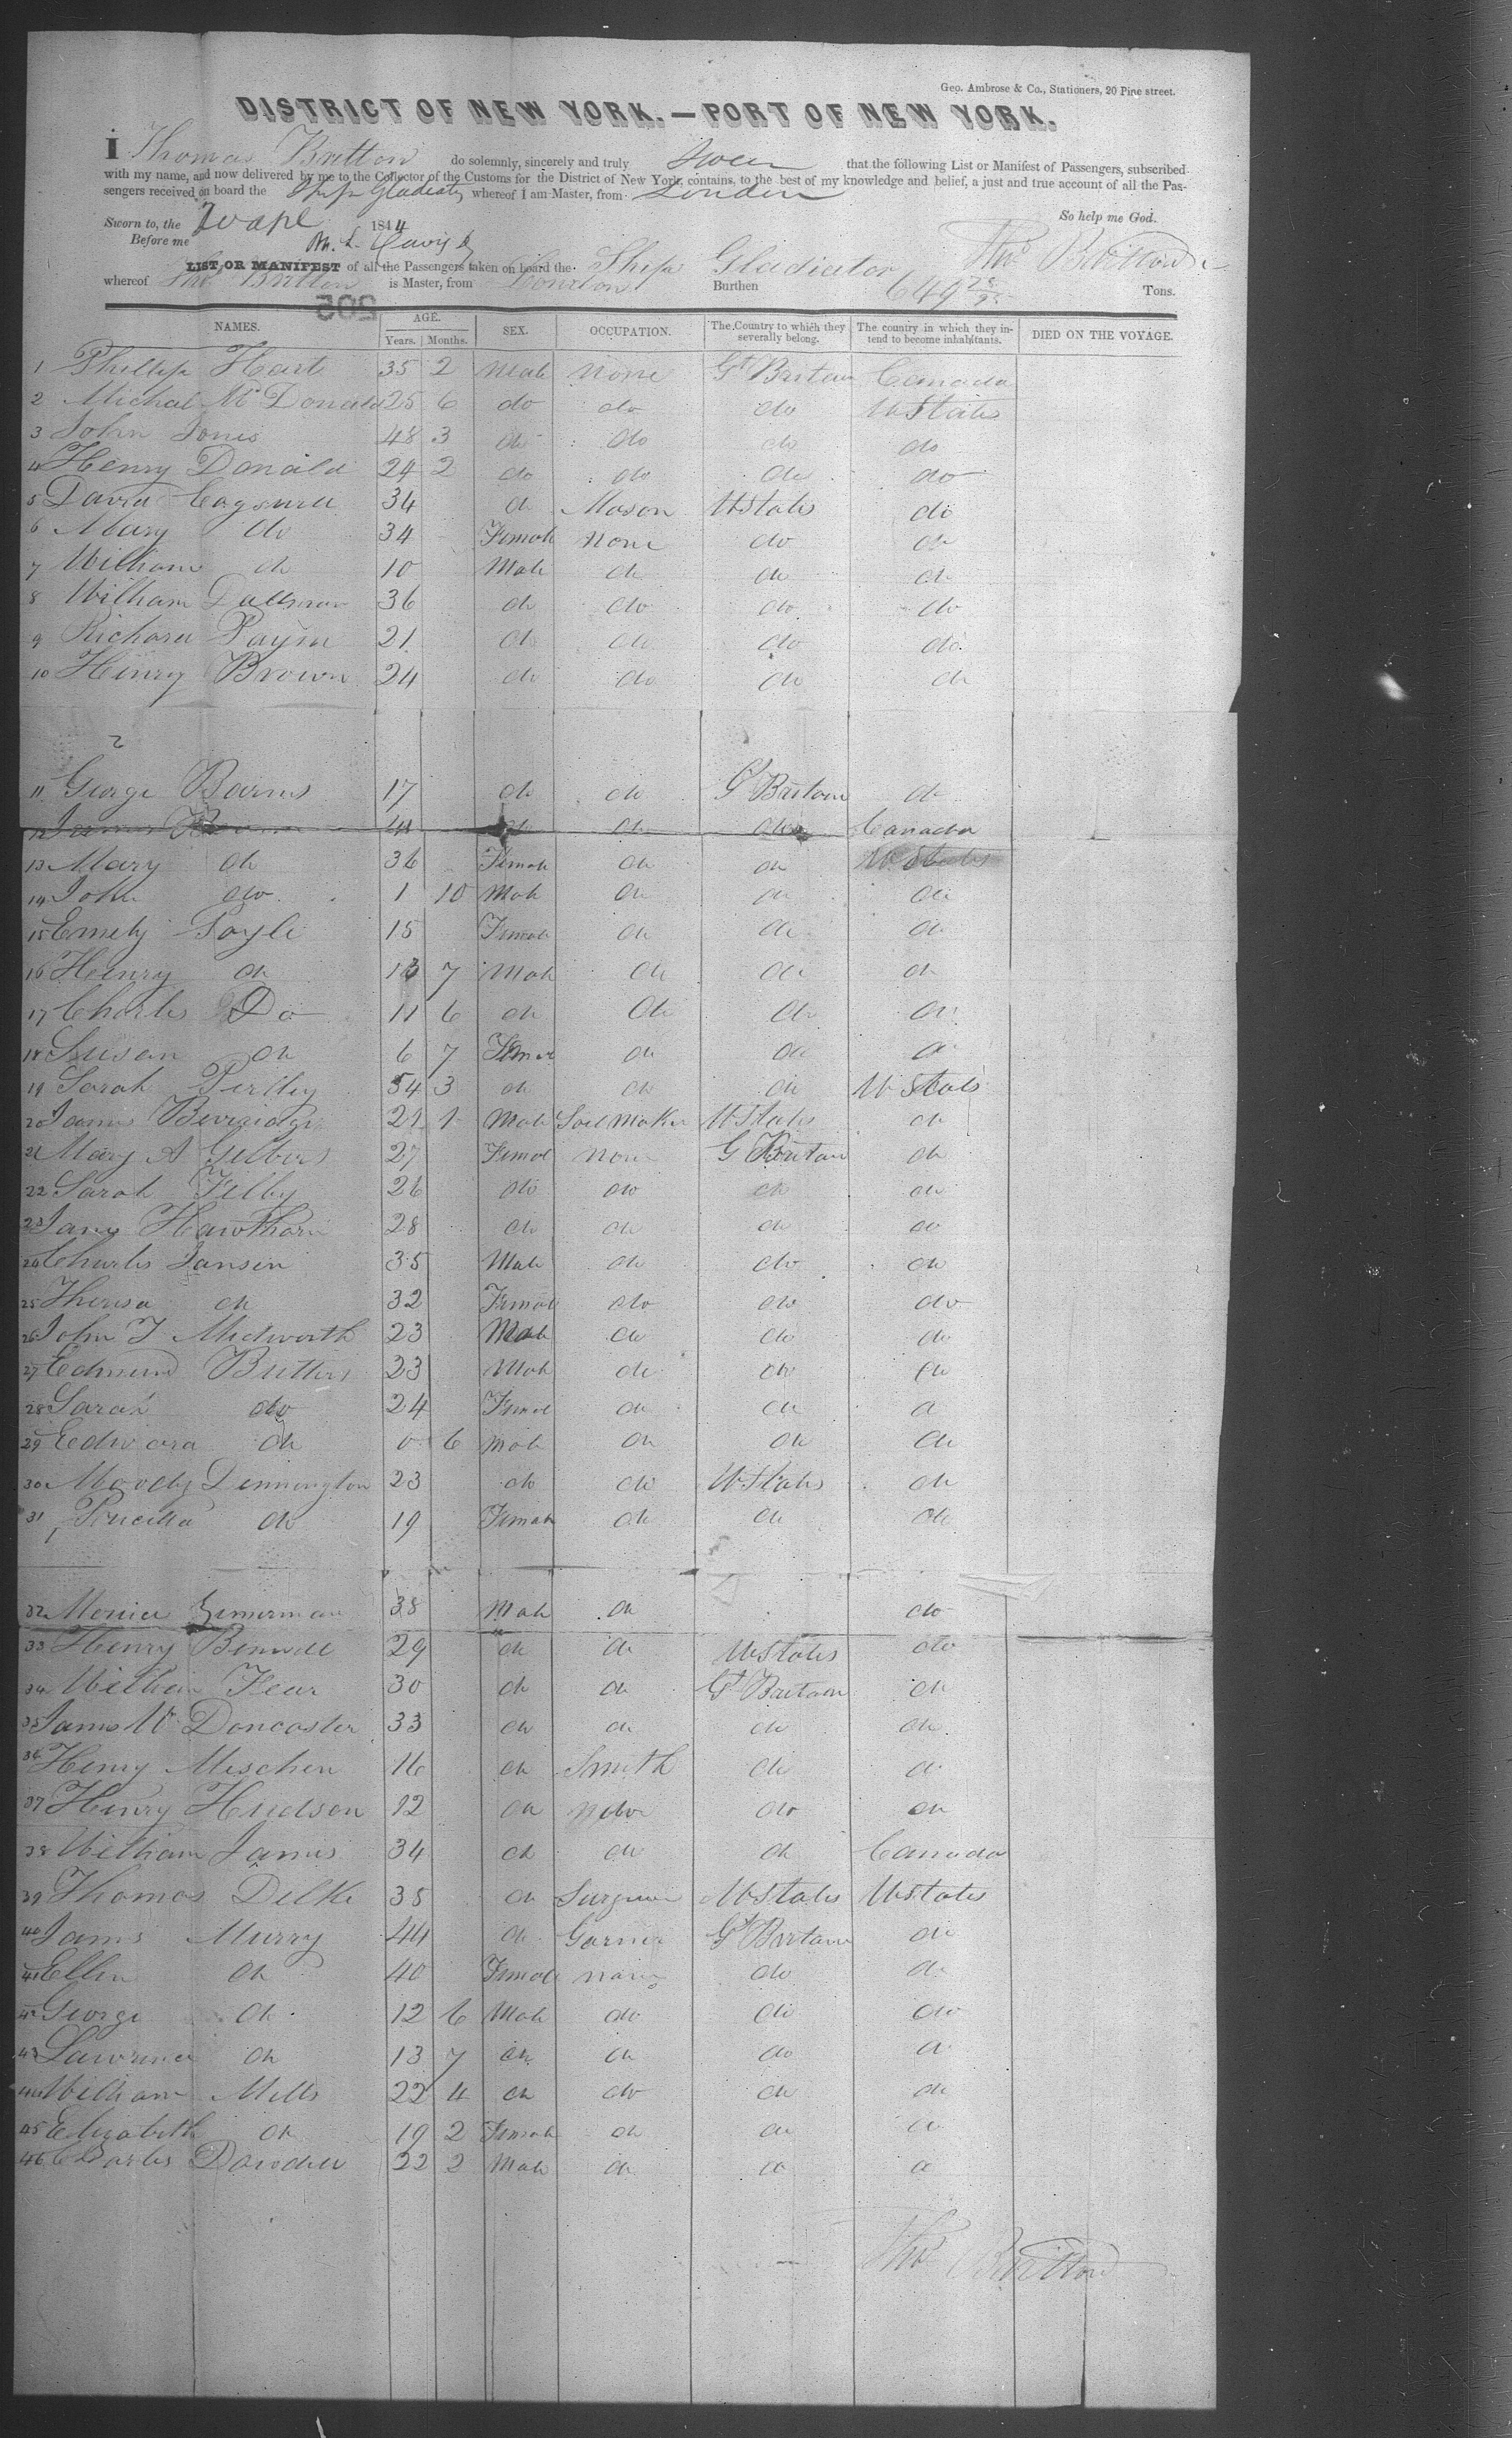 Geo. Ambrose & Co., Stationers, 20 Pine street.
DISTRICT OF NEW YORK.—PORT OF NEW YORK.
I Thomas Britton do solemnly, sincerely and truly Swear that the following List or Manifest of Passengers, subscribed
with my name, and now delivered by me to the Collector of the Customs for the District of New York, contains, to the best of my knowledge and belief, a just and true account of all the Pas-
sengers received on board the Ship Gladiator whereof I am Master, from London
So help me God.
Sworn to, the 1844
Before me Thos Britton
LIST OR MANIFEST of all the Passengers taken on board the Ship Gladiator
whereof Thos Britton is Master, from London Burthen 649 Tons.
505
NAMES. AGE. Years. Months. SEX. OCCUPATION. The Country to which they severally belong. The country in which they intend to become inhabitants. DIED ON THE VOYAGE.
1 Phillip Hart 35 2 Male None Gt Britain Canada
2 Michal McDonald 25 6 do do do U States
3 John Jones 48 3 do do do do
4 Henry Donald 24 2 do do do do
5 David 34 do Mason U States do
6 Mary do 34 Female None do do
7 William do 10 Male do do do
8 William 36 do do do do
9 Richard Payne 21 do do do do
10 Henry Brown 24 do do do do
2
11 George Barnes 17 do do Gt Britain do
12 James do do do Canada
13 Mary do 36 Female do do U States
14 John do 1 10 Male do do do
15 Emely 15 Female do do do
16 Henry do 13 7 Male do do do
17 Charles Do 11 6 do do do do
18 Susan do 6 7 Female do do do
19 Sarah 54 3 do do do U States
20 James 21 1 Male Sail Maker U States do
21 Mary A 27 Female None G Britain do
22 Sarah 26 do do do do
23 Jane Hawthorn 28 do do do do
24 Charles Jansen 35 Male do do do
25 Theresa do 32 Female do do do
26 John T Midworth 23 Male do do do
27 Edmund Butters 23 Male do do do
28 Sarah do 24 Female do do do
29 Edward do 0 6 Male do do do
30 Moody Dennington 23 do do U States do
31 Priscilla do 19 Female do do do
32 38 Male do do
33 Henry 29 do do U States do
34 William 30 do do Gt Britain do
35 James W Doncaster 33 do do do do
36 Henry 16 do Smith do do
37 Henry Hudson 12 do do do
38 William James 34 do do do Canada
39 Thomas Delke 35 do Surgeon U States U States
40 James Murry 44 do Gt Britain do
41 Ellen do 40 Female None do do
42 George do 12 6 Male do do do
43 Lawrence do 13 7 do do do do
44 William Mills 22 4 do do do do
45 Elizabeth do 19 2 Female do do do
46 Charles 22 2 Male do do do
Thos Britton